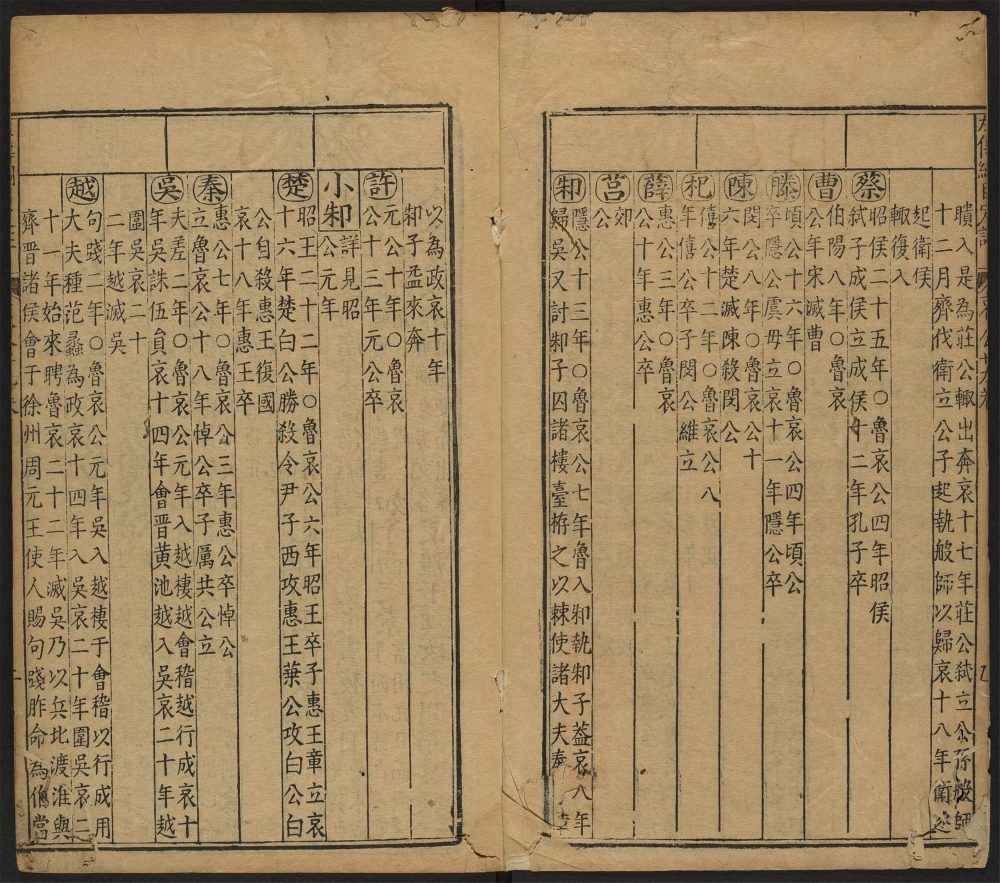 聵入是為莊公輒出奔哀十七年莊公弒立公孫般師
十二月齊伐衛立公子起執般師以歸哀十八年衛逐
起衛侯
輒復入
蔡
昭侯二十五年〇魯哀公四年昭侯
弒子成侯立成侯十二年孔子卒
曹
伯陽八年〇魯哀
公八年宋滅曹
滕
頃公十六年〇魯哀公四年頃公
卒隱公虞毋立哀十一年隱公卒
陳
閔公八年〇魯哀公十
六年楚滅陳殺閔公
杞
僖公十二年〇魯哀公八
年僖公卒子閔公維立
薛
惠公三年〇魯哀
公十年惠公卒
莒
郊
公
邾
隱公十三年〇魯哀公七年魯入邾執邾子益哀八年
歸吳又討邾子囚諸樓臺栫之以棘使諸大夫奉
以為政哀十年
邾子益來奔
許
元公十年〇魯哀
公十三年元公卒
小邾
詳見昭
公元年
楚
昭王二十二年〇魯哀公六年昭王卒子惠王章立哀
十六年楚白公勝殺令尹子西攻惠王葉公攻白公白
公自殺惠王復國
哀十八年惠王卒
秦
惠公七年〇魯哀公三年惠公卒悼公
立魯哀公十八年悼公卒子厲共公立
吳
夫差二年〇魯哀公元年入越棲越會稽越行成哀十
年吳誅伍員哀十四年會晉黃池越入吳哀二十年越
圍吳哀二十
二年越滅吳
越
句踐二年〇魯哀公元年吳入越棲于會稽以行成用
大夫種范蠡為政哀十四年入吳哀二十年圍吳哀二
十一年始來聘魯哀二十二年滅吳乃以兵北渡淮與
齊晉諸侯會于徐州周元王使人賜句踐胙命為伯當